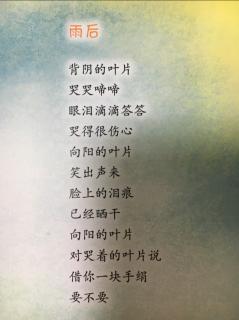 雨后
背阴的叶片
哭哭啼啼
眼泪滴滴答答
哭得很伤心
向阳的叶片
笑出声来
脸上的泪痕
已经晒干
向阳的叶片
对哭着的叶片说
借你一块手绢
要不要